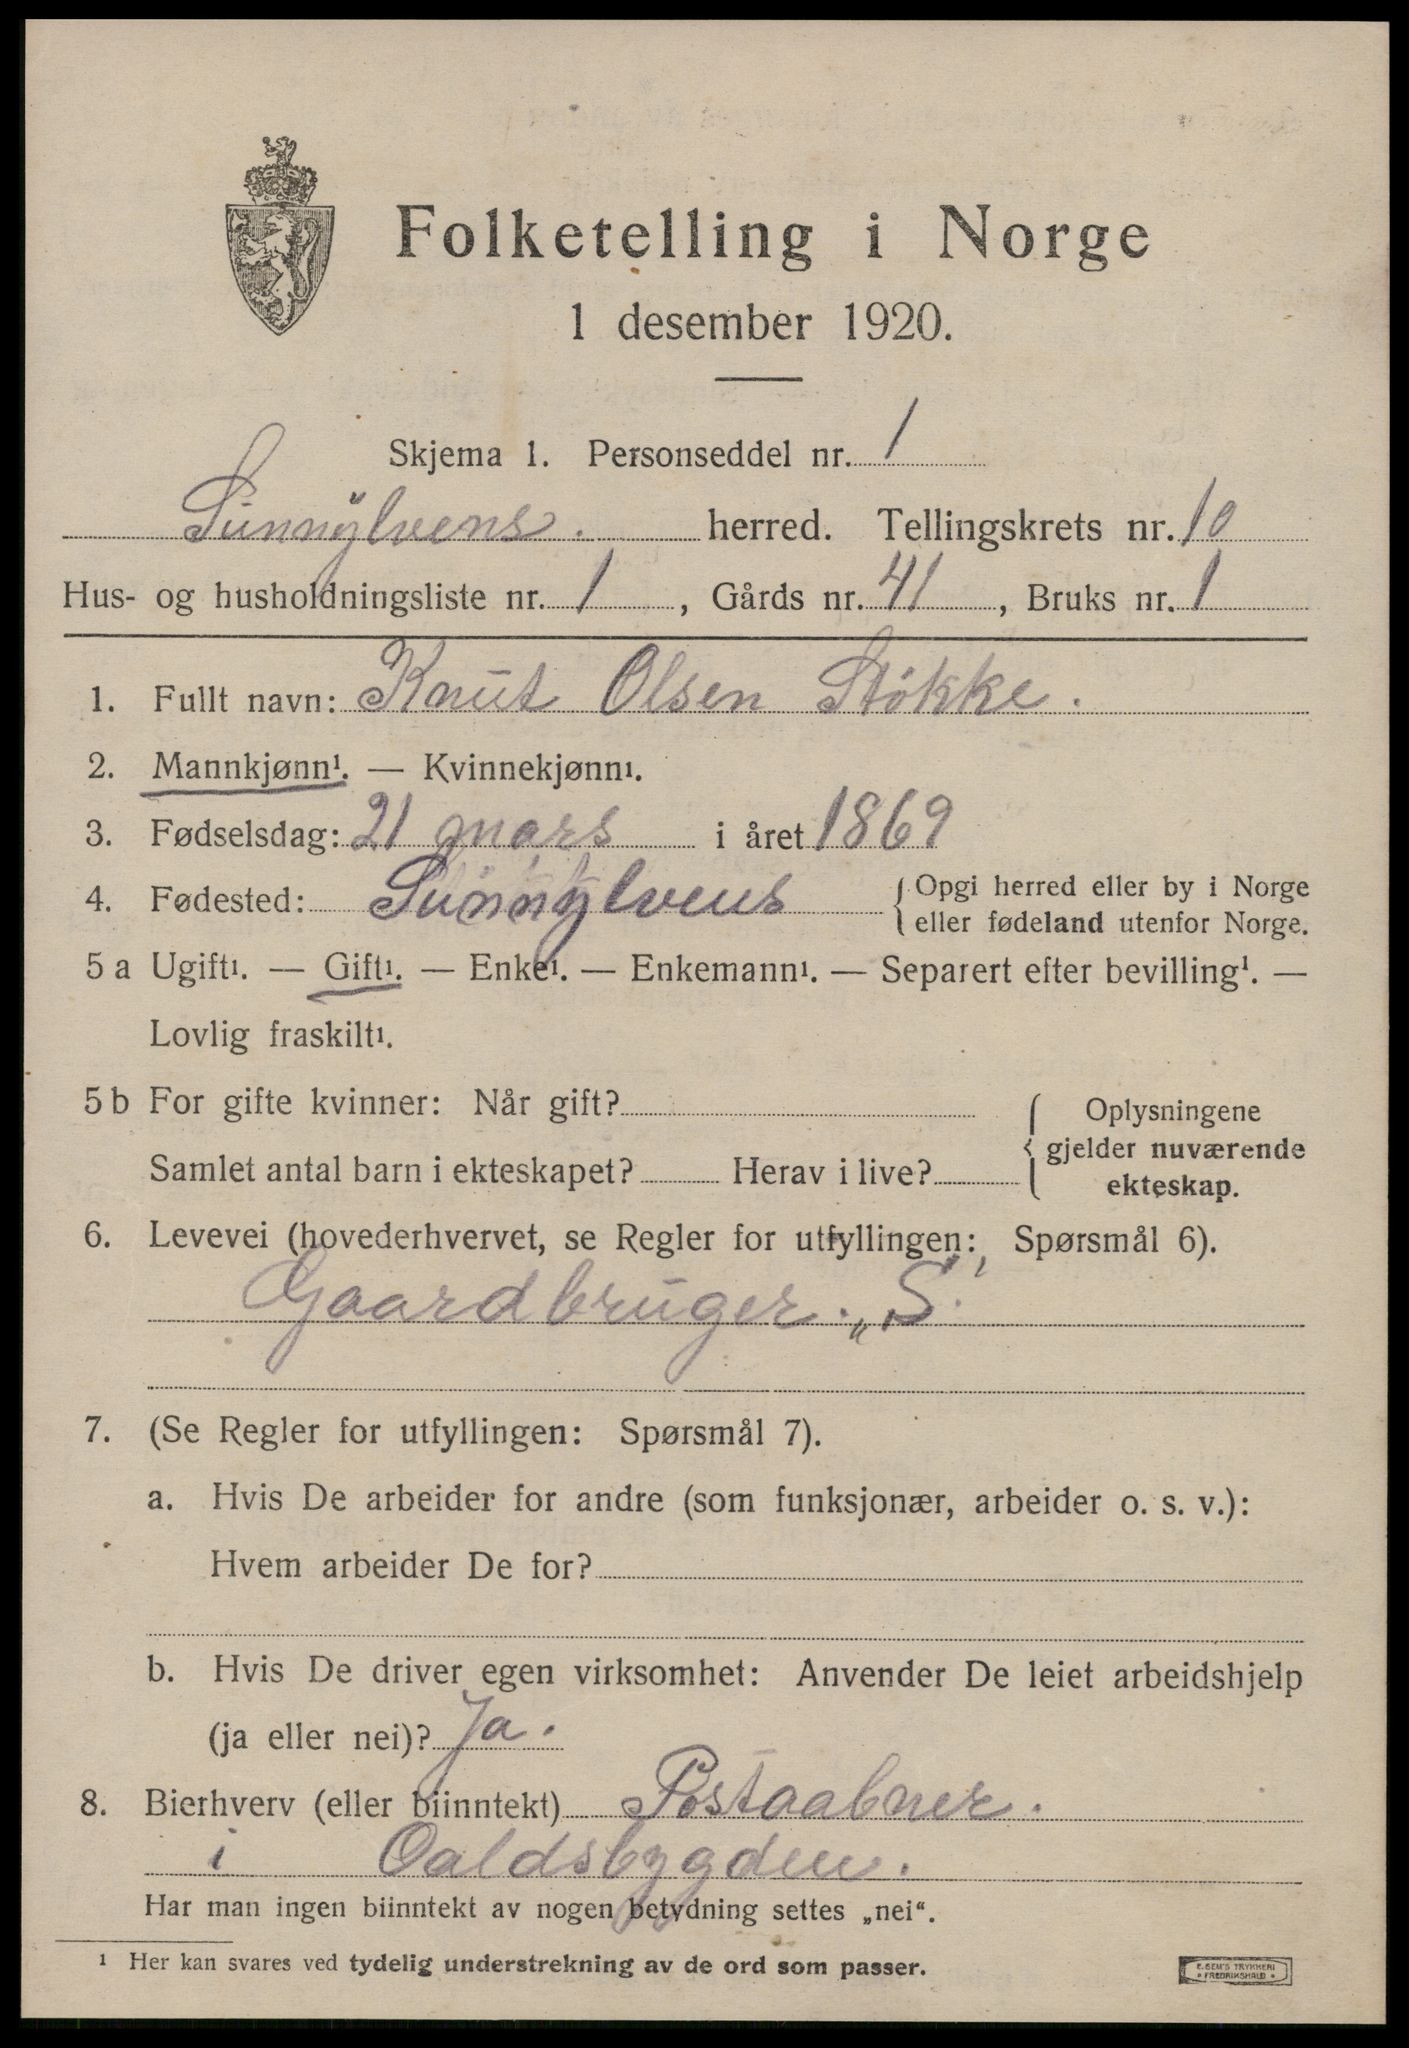 Folketelling i Norge
1 desember 1920.
Skjema 1. Personseddel nr. 1
Sunnylvens. herred. Tellingskrets nr. 10
Hus- og husholdningsliste nr. 1, Gårds nr. 41, Bruks nr. 1
1. Fullt navn: Knut Olsen Støkke.
2. Mannkjønn¹. — Kvinnekjønn¹.
3. Fødselsdag: 21 mars i året 1869
4. Fødested: Sunnylvens { Opgi herred eller by i Norge
eller fødeland utenfor Norge.
5 a Ugift¹. — Gift¹. — Enke¹. — Enkemann¹. — Separert efter bevilling¹. —
Lovlig fraskilt¹.
5 b For gifte kvinner: Når gift? { Oplysningene
gjelder nuværende
Samlet antal barn i ekteskapet? Herav i live? ekteskap.
6. Levevei (hovederhvervet, se Regler for utfyllingen: Spørsmål 6).
Gaardbruger. „S.
7. (Se Regler for utfyllingen: Spørsmål 7).
a. Hvis De arbeider for andre (som funksjonær, arbeider o. s. v.):
Hvem arbeider De for?
b. Hvis De driver egen virksomhet: Anvender De leiet arbeidshjelp
(ja eller nei)? Ja.
8. Bierhverv (eller biinntekt) Postaabner.
i Oaldsbygden.
Har man ingen biinntekt av nogen betydning settes „nei“.
¹ Her kan svares ved tydelig understrekning av de ord som passer.
E. SEM'S TRYKKERI
* FREDRIKSHALD *